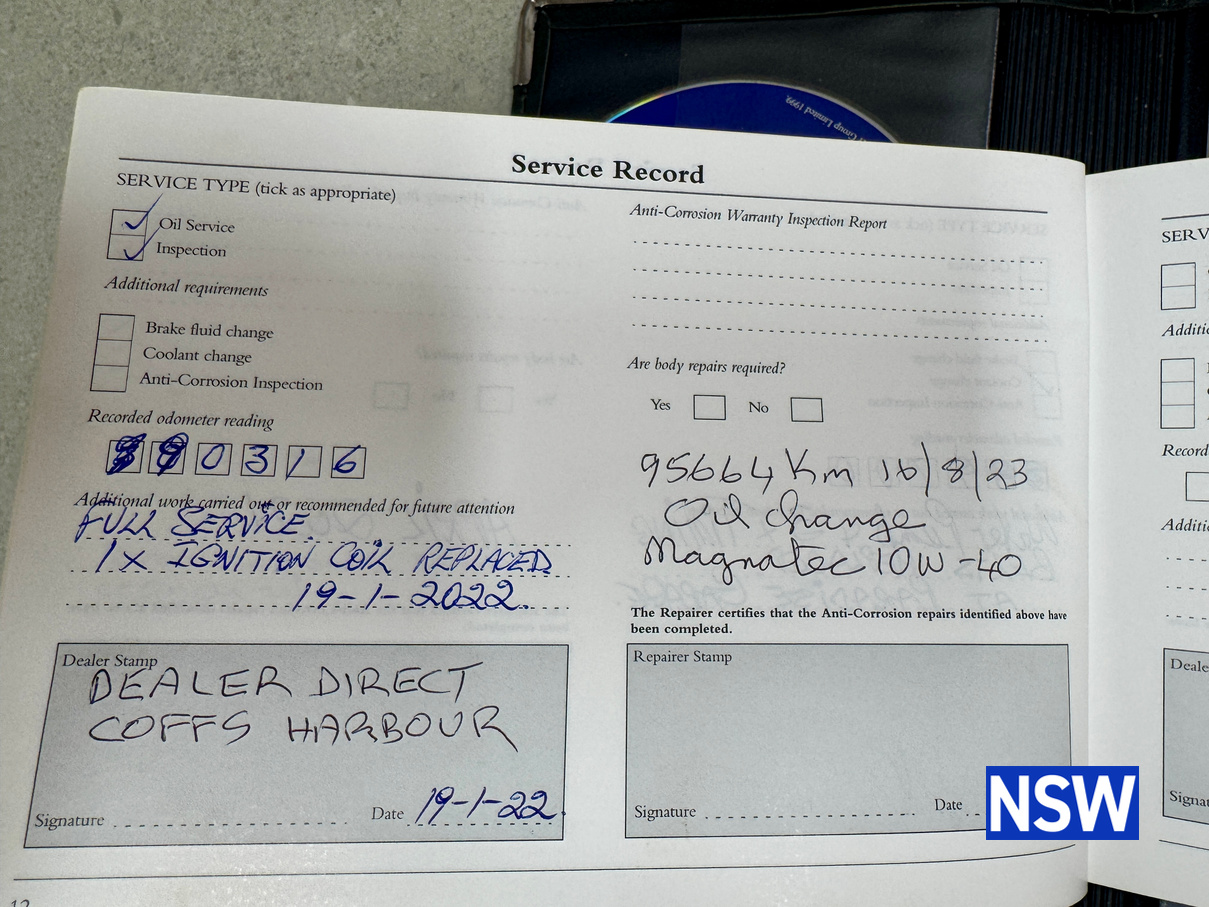 Group Limited 1999.
Service Record
SERVICE TYPE (tick as appropriate)
Oil Service
Inspection
Additional requirements
Brake fluid change
Coolant change
Anti-Corrosion Inspection
Recorded odometer reading
0 3 1 6
Additional work carried out or recommended for future attention
FULL SERVICE.
1X IGNITION COIL REPLACED
19-1-2022.
Dealer Stamp
DEALER DIRECT
COFFS HARBOUR
Signature
Date 19-1-22.
Anti-Corrosion Warranty Inspection Report
Are body repairs required?
Yes No
95664 Km 16/8/23
Oil change
Magnatec 10W-40
The Repairer certifies that the Anti-Corrosion repairs identified above have
been completed.
Repairer Stamp
Signature
Date
NSW
SERV
Additi
Record
Additi
Deale
Signa
12